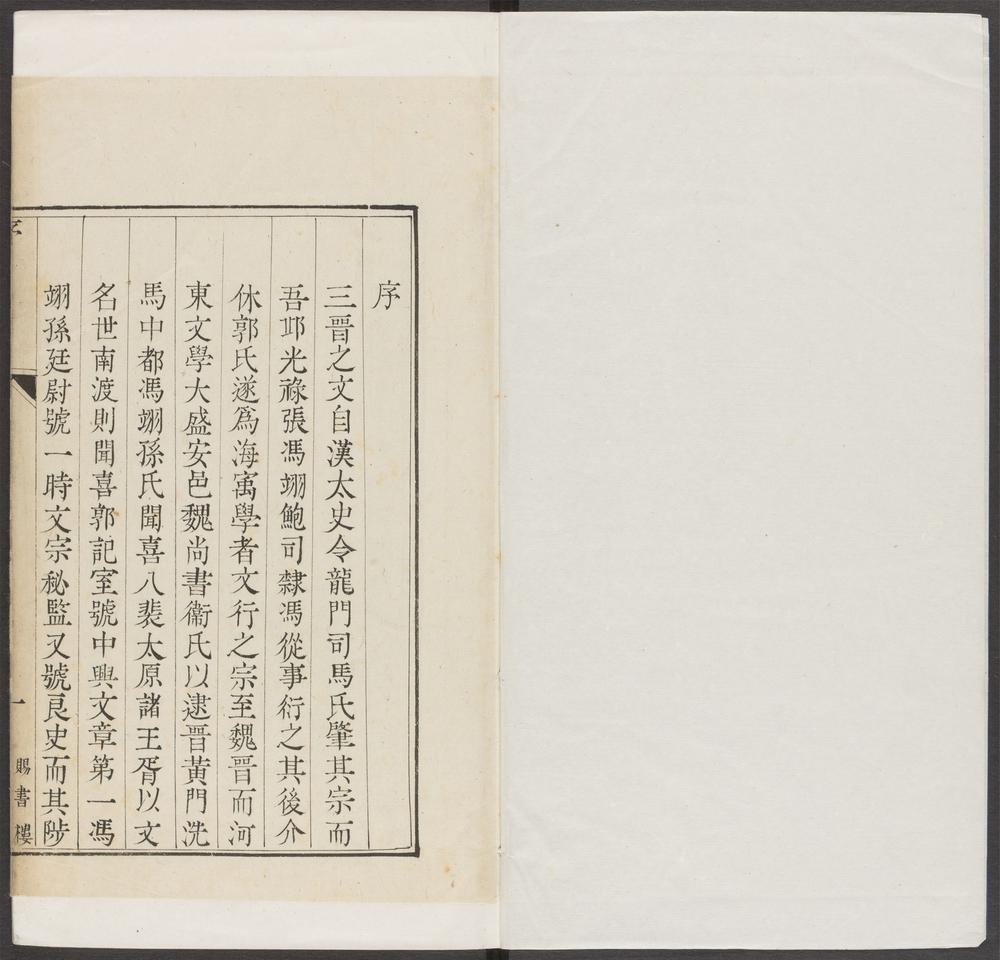 序
三晉之文自漢太史令龍門司馬氏肇其宗而
吾邛光祿張馮翊鮑司隸馮從事衍之其後介
休郭氏遂爲海寓學者文行之宗至魏晉而河
東文學大盛安邑魏尚書衞氏以逮晉黃門洗
馬中都馮翊孫氏聞喜八裴太原諸王胥以文
名世南渡則聞喜郭記室號中興文章第一馮
翊孫廷尉號一時文宗秘監又號良史而其陟
一
賜書樓